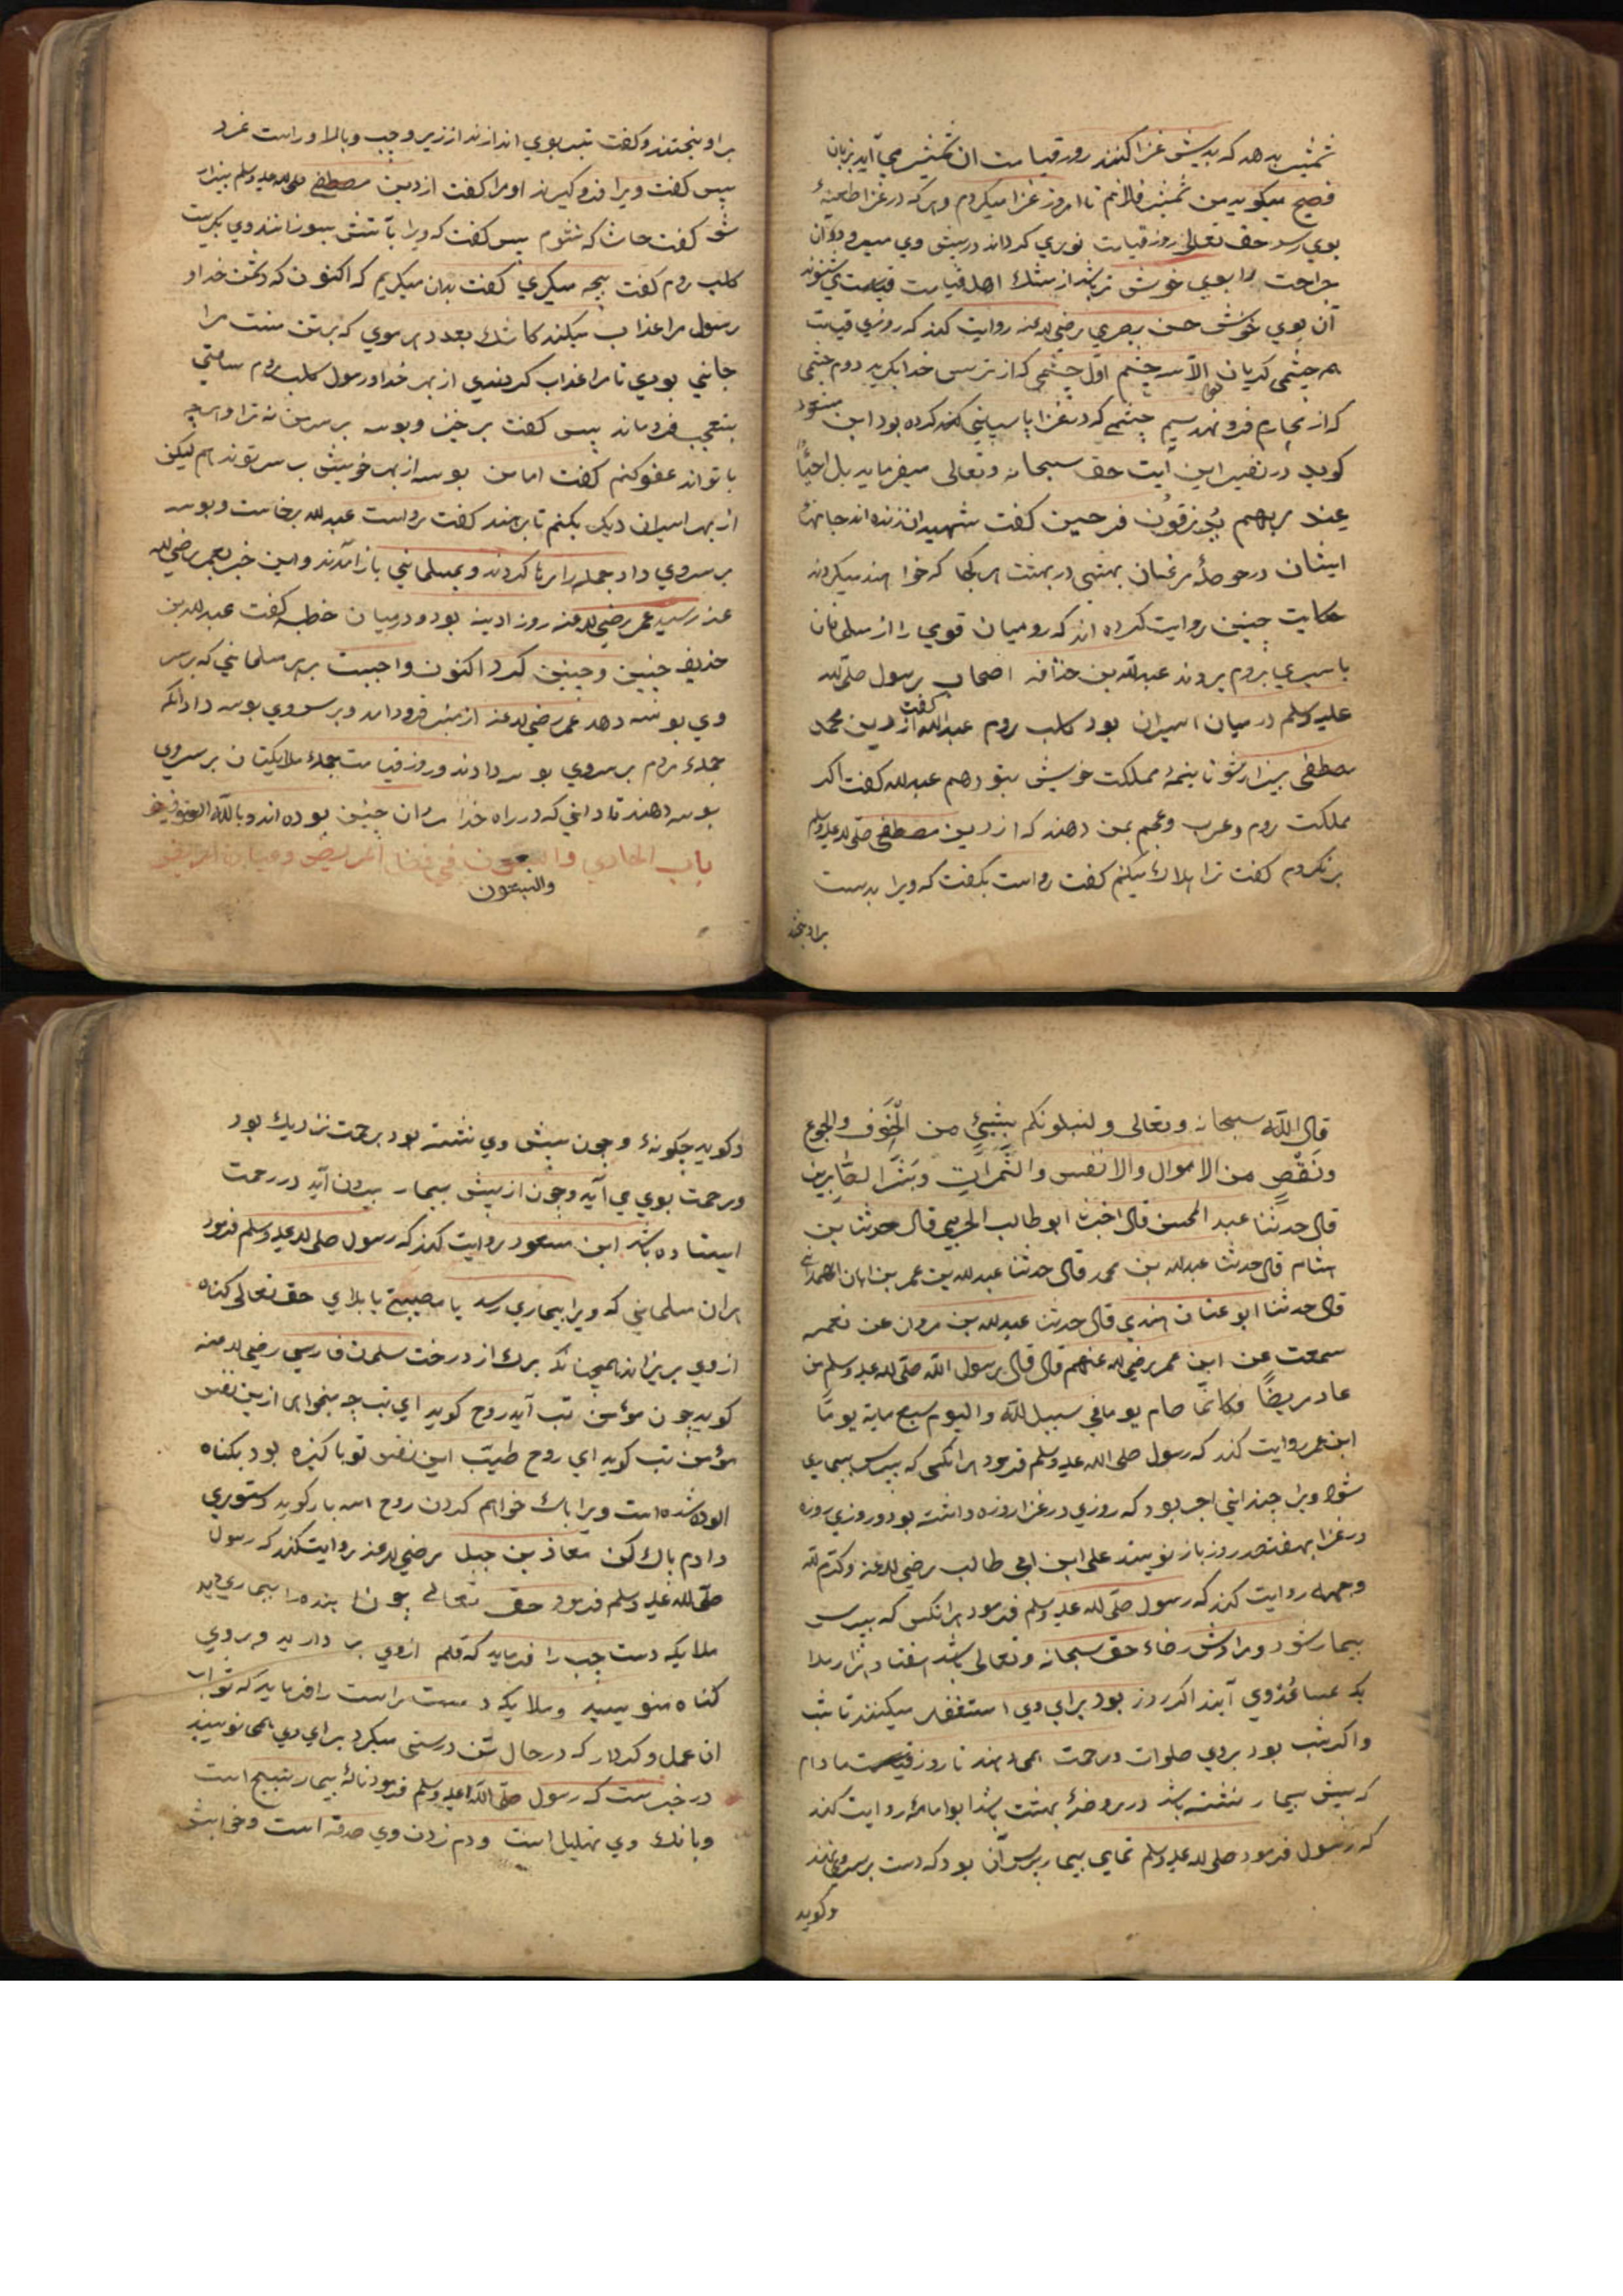 شمشیر بدهد که بدیش غزا کنند روز قیامت ان شمشیر می آید بزبان
فصیح میکوید من شمشیر فلانم تا امروز غزا میکردم و هر که در غزا طعنهٔ
بوی رسد حق تعالی روز قیامت نوری کرداند در پیش وی میرود و آن
جراحت را بویی خوش تر باشد از مشك اهل قیامت می شنوند
آن بوی خوش حسن بصری رضی الله عنه روایت کند که روزی قیامت
همه چشمی کریان بود الّا سه چشم اوّل چشمی که از ترس خدا بکرید دوم چشمی
که از محارم فرو نهد سیم چشمی که در غزا پاسبانی کند کرده بود ابن مسعود
کوید در تفسیر این آیت حق سبحانه وتعالی میفرماید بل احیٓاءٌ
عِند ربهم یُرزقُون فرحین کفت شهیدان زنده اند جانهاء
ایشان در حوصلهٔ مرغان بهشتی در بهشت هر کجا که خواهند میکردند
حکایت چنین روایت کرده اند که رومیان قومی را از مسلمانان
باسیری بروم بردند عبد الله بن حذافه اصحاب رسول صلّی الله
علیه وسلم در میان اسیران بود کلب روم کفت عبد الله از دین محمد
مصطفی بیزار شو تا نیمهٔ مملکت خویش بتو دهم عبد الله کفت اکر
مملکت روم و عرب و عجم بمن دهند که از دین مصطفی صلّی الله علیه وسلم
برنکردم کفت ترا هلاك میکنم کفت رواست بکفت که ویرا بدست
براویختند
براویختند و کفت تیر بوی اندازند از زیر و چپ و بالا و راست
پس کفت ویرا فرو کیرند او مرا کفت از دین مصطفی صلی الله علیه وسلم بیزار
شو کفت حاشا که شوم پس کفت که ویرا بآتش بسوزانند وی بکریست
کلب روم کفت بچه میکری کفت بدان میکریم که اکنون که دشمن خدا و
رسول مرا عذاب میکند کاشك بعدد هر موی که بر تن منست مرا
جانی بودی تا مرا عذاب کردندی از بهر خدا و رسول کلب روم ساعتی
بتعجب فرو ماند پس کفت بر خیز و بوسه بر سر من نه ترا و هرچه
با تواند عفو کنم کفت اما من بوسه از بهر خویش بر سر تو ندهم لیکن
از بهر اسیران دیکر بکنم تا برهند کفت رواست عبد الله برخاست و بوسه
بر سر وی داد جمله را رها کردند و بمسلمانی باز آمدند و این خبر بعمر رضی الله
عنه رسید عمر رضی الله عنه روز ادینه بود و در میان خطبه کفت عبد الله بن
حذیفه چنین و چنین کرد اکنون واجبست بر هر مسلمانی که بر سر
وی بوسه دهد عمر رضی الله عنه از منبر فرود امد و بر سر وی بوسه داد انکه
جملهٔ مردم بر سر وی بوسه دادند و روز قیامت جملهٔ ملایکیتان بر سر وی
بوسه دهند تا دانی که در راه خدا مردان چنین بوده اند و بالله التوفیق
باب الحادی والسبعون فی فضل المریض وعیادة المریض
والسبعون
قال الله سبحانه وتعالی ولنبلونکم بشیئٍ من الْخَوف والجوع
ونَقْصٍ من الاموال والانفس والثَّمَراتِ وَبَشِّر الصَّابرین
قال حدثنا عبد المحسن قال اخبرنا ابو طالب الحربی قال حدثنا بن
هشام قال حدثنا عبد الله بن محمد قال حدثنا عبد الله بن عمر بن ابان الهمدانی
قال حدثنا ابو عثمان الهندی قال حدثنا عبد الله بن مروان عن نعمه
سمعت عن ابن عمر رضی الله عنهم قال قال رسول الله صلّی الله علیه وسلم من
عاد مریضًا فکانّما صام یوما فی سبیل الله والیوم سبع مایة یومًا
ابن عمر روایت کند که رسول صلی الله علیه وسلم فرمود هر انکسی که بپرس بیماری
شود ویرا چندانی اجر بود که روزی در غزا روزه داشته بود و روزی روزه
در غزا بهفتصد روز باز نویسند علی ابن ابی طالب رضی الله عنه وکرّم الله
وجهه روایت کند که رسول صلّی الله علیه وسلم فرمود هر انکس که بپرس
بیمار شود و مرادش رضاء حق سبحانه وتعالی باشد هفتاد هزار ملا
یکه بمساعدٔ وی آیند اکر روز بود برای وی استغفار میکنند تا شب
و اکر شب بود بروی صلوات و رحمت همی دهند تا روز مادام
که پیش بیمار نشسته باشد در روضهٔ بهشت باشد ابو امامهٔ روایت کند
که رسول فرمود صلی الله علیه وسلم تمامی بیمار پرس آن بود که دست بر سر وی نهند
و کوید
و کوید چکونهٔ و چون پیش وی نشسته بود برحمت نزدیك بود
و رحمت بوی می آید و چون از پیش بیمار بیرون آید در رحمت
ایستاده باشد ابن مسعود روایت کند که رسول صلی الله علیه وسلم فرمود
هر ان مسلمانی که ویرا بیماری رسد یا مصیبتی یا بلای حق تعالی کناه
از وی بریزاند همچنانکه برك از درخت سلمان فارسی رضی الله عنه
کوید چون مؤمن تب آید روح کوید ای تب چه میخواهی ازین نفس
مؤمن تب کوید ای روح طیّب این نفس تو پاکیزه بود بکناه
الوده شده است ویرا پاك خواهم کردن روح اسه بار کوید دستوری
دادم پاك کن معاذ بن جبل رضی الله عنه روایت کند که رسول
صلّی الله علیه وسلم فرمود حق تعالی چون بنده را بیماری دهد
ملایکه دست چپ را فرماید که قلم ازوی بر دارید و بروی
کناه منویسید و ملایکه دست راست را فرماید که ثواب
ان عمل و کردار که در حال تن درستی میکرد برای وی همی نویسید
در خبرست که رسول صلّی الله علیه وسلم فرمود نالهٔ بیمار تسبیح است
و بانك وی تهلیل است و دم زدن وی صدقه است و خوابش